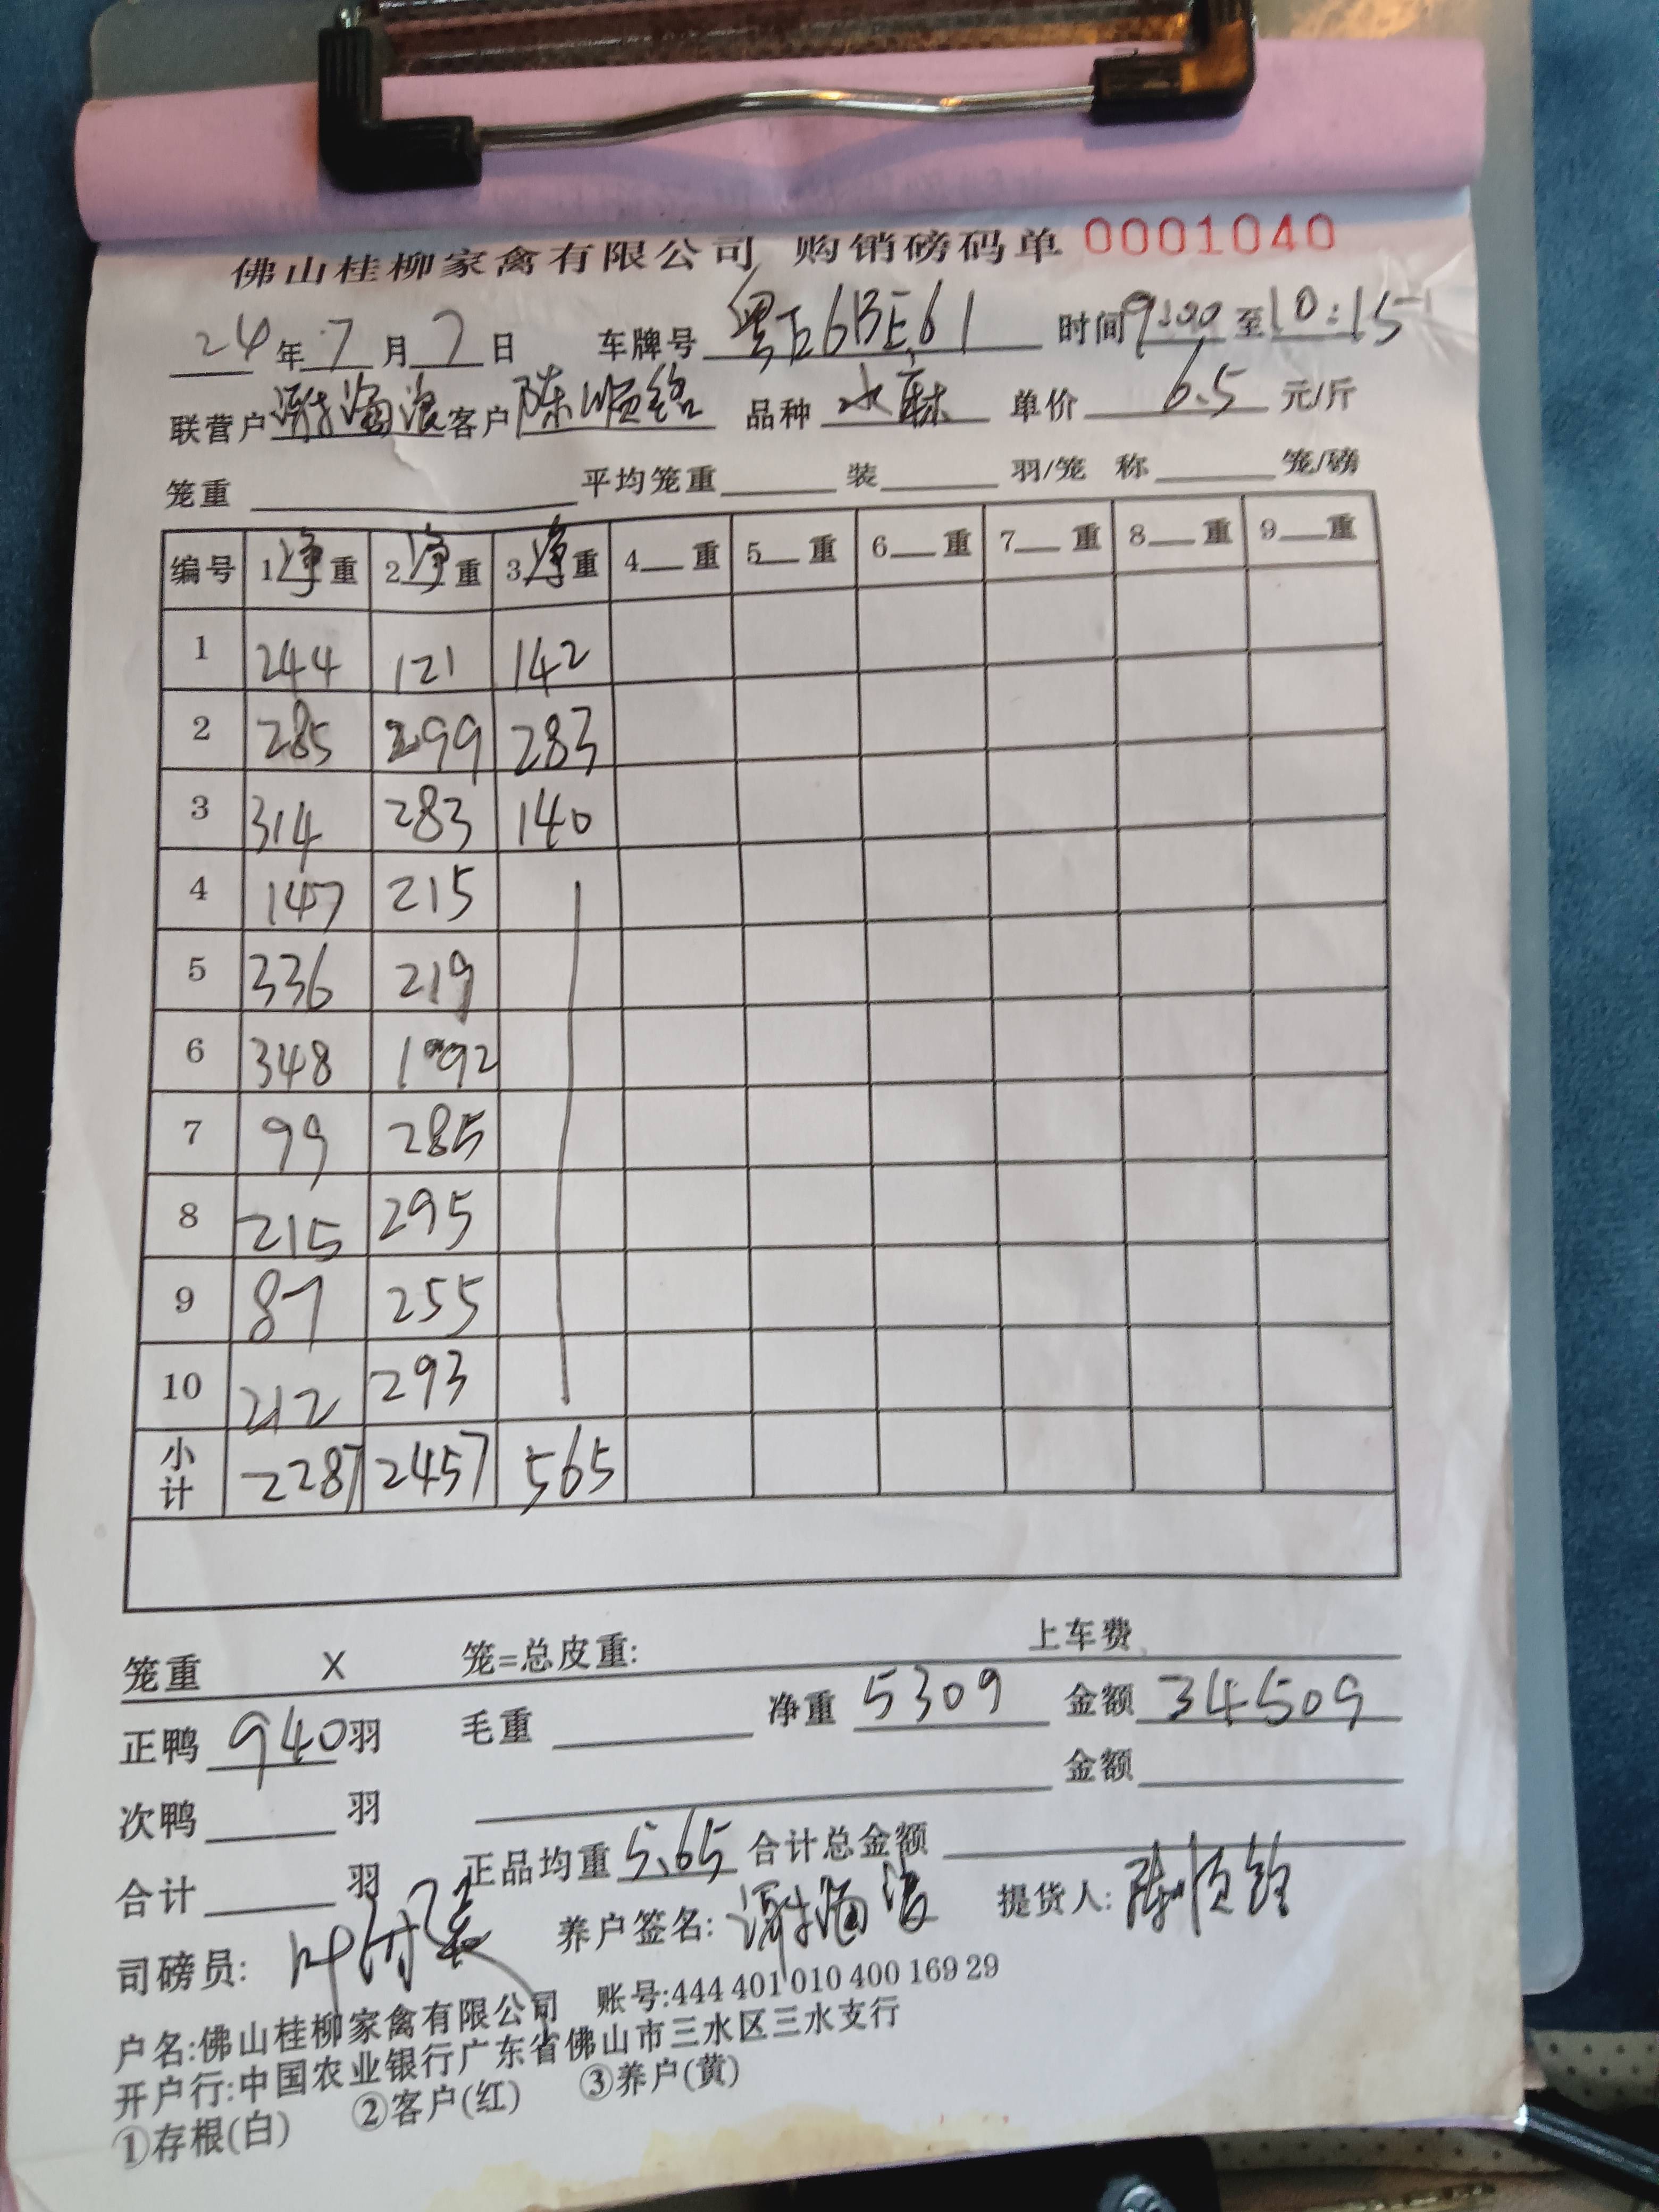 佛山桂柳家禽有限公司 购销磅码单 0001040
24年7月7日 车牌号 粤E6BE61 时间9:00至10:15
联营户 谢海浪 客户 陈顺铭 品种 水麻 单价 6.5 元/斤
笼重 平均笼重 装 羽/笼 称 笼/磅
编号 1净重 2净重 3净重 4 重 5 重 6 重 7 重 8 重 9 重
1 244 121 142
2 285 299 283
3 314 283 140
4 147 215
5 336 219
6 348 192
7 99 285
8 215 295
9 87 255
10 212 293
小计 2287 2457 565
笼重 X 笼=总皮重: 上车费
正鸭 940羽 毛重 净重 5309 金额 34509
次鸭 羽 金额
合计 羽 正品均重 5.65 合计总金额
司磅员: 养户签名: 谢海浪 提货人: 陈顺铭
户名:佛山桂柳家禽有限公司 账号:444 401 010 400 169 29
开户行:中国农业银行广东省佛山市三水区三水支行
①存根(白) ②客户(红) ③养户(黄)